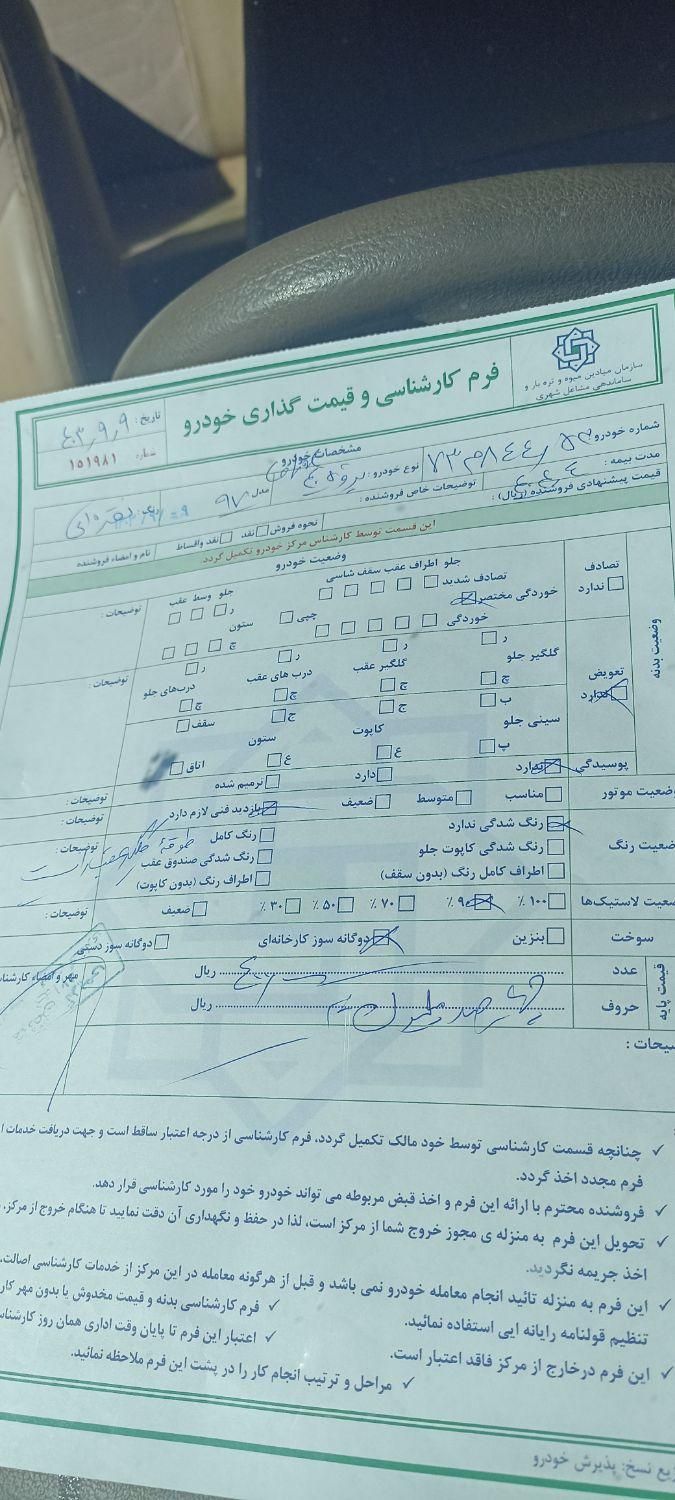 سازمان میادین میوه و تره بار و
ساماندهی مشاغل شهری
فرم کارشناسی و قیمت گذاری خودرو
تاریخ: ۴۰۳٫۹٫۹
شماره ۱۵۱۹۸۱
مشخصات خودرو
شماره خودرو: نوع خودرو: مدل: ۹۷ نقره‌ای
مدت بیمه: توضیحات خاص فروشنده:
قیمت پیشنهادی فروشنده (ریال): نحوه فروش نقد نقد واقساط نام و امضاء فروشنده
این قسمت توسط کارشناس مرکز خودرو تکمیل گردد.
وضعیت خودرو
وضعیت بدنه
تصادف
ندارد
جلو اطراف عقب سقف شاسی
تصادف شدید
خوردگی مختصر
خوردگی
چپی
ستون
جلو وسط عقب
ر
چ
توضیحات:
تعویض
ندارد
گلگیر جلو ر چ
گلگیر عقب ر چ
درب های عقب ر چ
درب‌های جلو ر چ
سینی جلو پ
کاپوت ج ع
ستون ج ع
سقف
اتاق
توضیحات:
پوسیدگی ندارد دارد ترمیم شده توضیحات:
وضعیت موتور مناسب متوسط ضعیف بازدید فنی لازم دارد توضیحات:
وضعیت رنگ
رنگ شدگی ندارد رنگ کامل توضیحات:
رنگ شدگی کاپوت جلو رنگ شدگی صندوق عقب
اطراف کامل رنگ (بدون سقف) اطراف رنگ (بدون کاپوت)
وضعیت لاستیک‌ها ۱۰۰٪ ۹۰٪ ۷۰٪ ۵۰٪ ۳۰٪ ضعیف توضیحات:
سوخت بنزین دوگانه سوز کارخانه‌ای دوگانه سوز دستی
قیمت پایه
عدد ریال مهر و امضاء کارشناس
حروف چهارصد میلیون ریال
توضیحات:
✓ چنانچه قسمت کارشناسی توسط خود مالک تکمیل گردد، فرم کارشناسی از درجه اعتبار ساقط است و جهت دریافت خدمات
فرم مجدد اخذ گردد.
✓ فروشنده محترم با ارائه این فرم و اخذ قبض مربوطه می تواند خودرو خود را مورد کارشناسی قرار دهد.
✓ تحویل این فرم به منزله ی مجوز خروج شما از مرکز است، لذا در حفظ و نگهداری آن دقت نمایید تا هنگام خروج از مرکز،
اخذ جریمه نگردید.
✓ این فرم به منزله تائید انجام معامله خودرو نمی باشد و قبل از هرگونه معامله در این مرکز از خدمات کارشناسی اصالت،
تنظیم قولنامه رایانه ایی استفاده نمائید.
✓ فرم کارشناسی بدنه و قیمت مخدوش یا بدون مهر
✓ این فرم درخارج از مرکز فاقد اعتبار است.
✓ اعتبار این فرم تا پایان وقت اداری همان روز
✓ مراحل و ترتیب انجام کار را در پشت این فرم ملاحظه نمائید.
نسخ: پذیرش خودرو